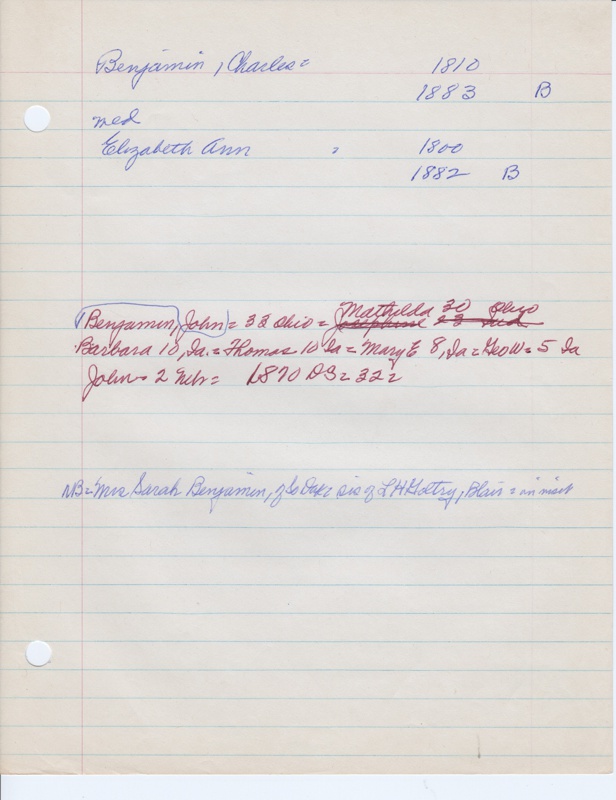 Benjamin, Charles = 1810
1883 B
med
Elizabeth Ann = 1800
1882 B
Mathilda 30 Ohio
Benjamin, John = 33 Ohio = Josephine 23 Ind
Barbara 10, Ia. = Thomas 10 Ia = Mary E 8, Ia = Geo W = 5 Ia
John = 2 Neb = 1870 DS = 32 =
NB = Mrs Sarah Benjamin, of So Dak = sis of L H Goltry, Blair = in